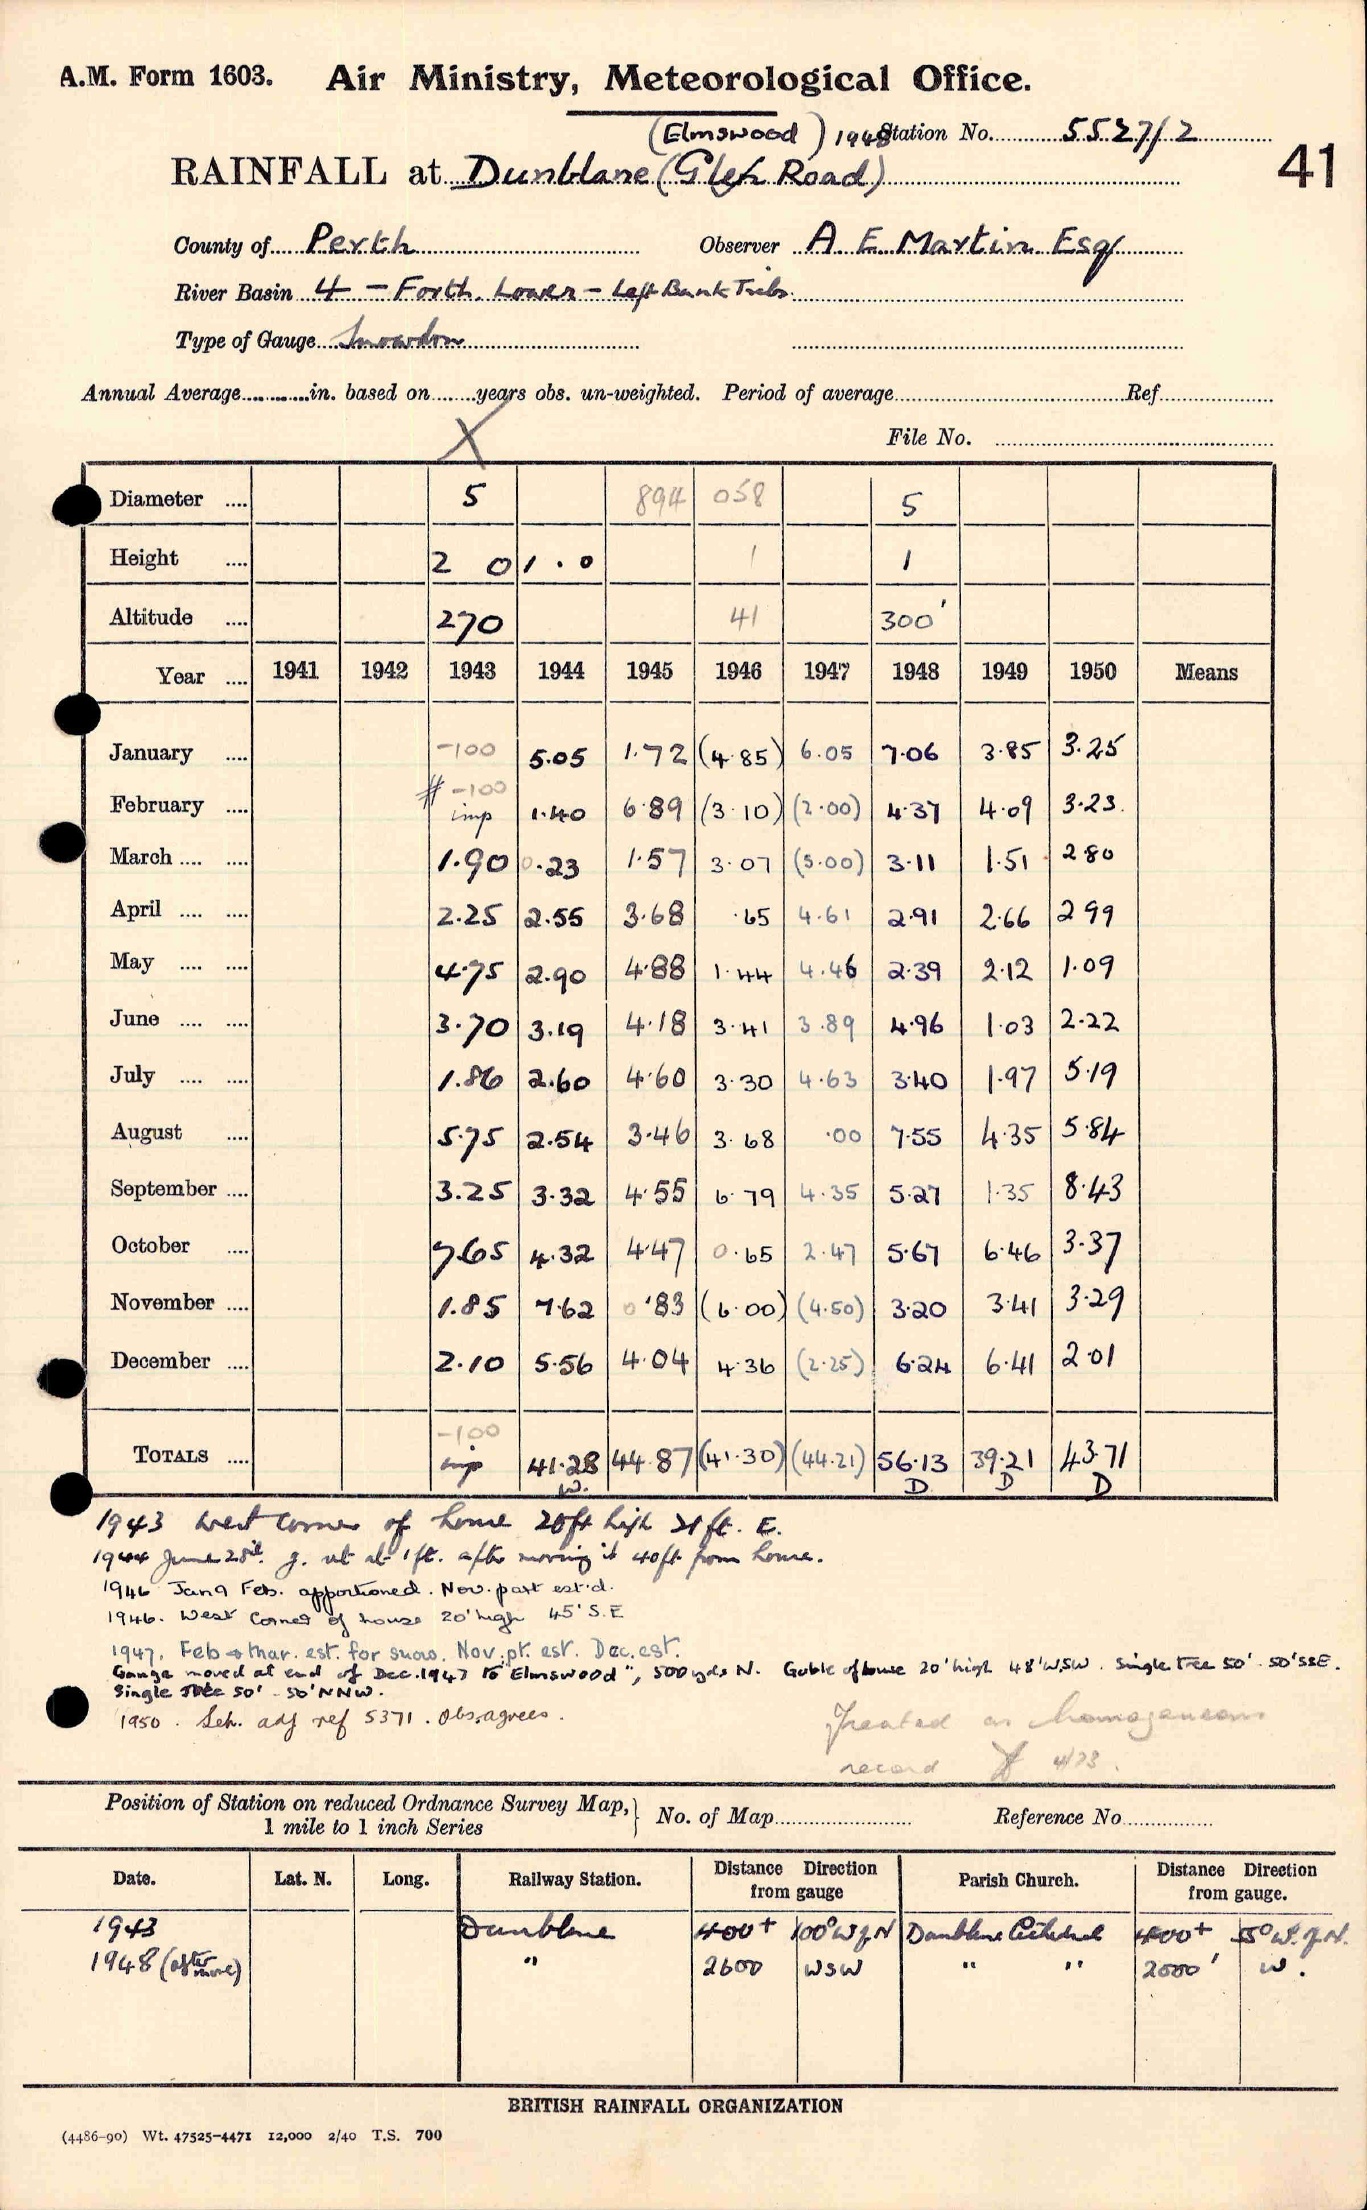 A.M. Form 1603. Air Ministry, Meteorological Office.
(Elmswood) 1948 Station No. 5527/2
41
RAINFALL at Dunblane (Glen Road)
County of Perth Observer A E Martin Esq
River Basin 4 - Forth. Lower - Left Bank Tribs
Type of Gauge Snowdon
Annual Average in. based on years obs. un-weighted. Period of average Ref
X
File No.
Diameter .... 5 894 058 5
Height .... 2 0 1.0 1 1
Altitude .... 270 41 300'
Year .... 1941 1942 1943 1944 1945 1946 1947 1948 1949 1950 Means
January .... -100 5.05 1.72 (4.85) 6.05 7.06 3.85 3.25
February .... # -100 imp 1.40 6.89 (3.10) (2.00) 4.37 4.09 3.23
March .... .... 1.90 0.23 1.57 3.07 (5.00) 3.11 1.51 2.80
April .... .... 2.25 2.55 3.68 .65 4.61 2.91 2.66 2.99
May .... .... 4.75 2.90 4.88 1.44 4.46 2.39 2.12 1.09
June .... .... 3.70 3.19 4.18 3.41 3.89 4.96 1.03 2.22
July .... .... 1.86 2.60 4.60 3.30 4.63 3.40 1.97 5.19
August .... 5.75 2.54 3.46 3.68 .00 7.55 4.35 5.84
September .... 3.25 3.32 4.55 6.79 4.35 5.27 1.35 8.43
October .... 7.65 4.32 4.47 0.65 2.47 5.67 6.46 3.37
November .... 1.85 7.62 0.83 (6.00) (4.50) 3.20 3.41 3.29
December .... 2.10 5.56 4.04 4.36 (2.25) 6.24 6.41 2.01
TOTALS .... -100 imp 41.28 44.87 (41.30) (44.21) 56.13 39.21 43.71
W. D D D
1943 West corner of house 20ft high 21ft. E.
1944 June 28th. g. set at 1ft. after moving it 40ft from house.
1946 Jan & Feb. apportioned. Nov. part est'd.
1946. West Corner of house 20' high 45' S.E
1947. Feb → Mar. est. for snow. Nov. pt. est. Dec. est.
Gauge moved at end of Dec. 1947 to "Elmswood", 500 yds N. Gable of house 20' high 48' WSW. Single tree 50' - 50' SSE.
Single tree 50' - 50' NNW.
1950. Sch. adj ref 5371. Obs. agrees.
Treated as homogeneous
record 4/73.
Position of Station on reduced Ordnance Survey Map, 1 mile to 1 inch Series } No. of Map Reference No
Date. Lat. N. Long. Railway Station. Distance Direction from gauge Parish Church. Distance Direction from gauge.
1943 Dunblane 400+ 100° W of N Dunblane Cathedral 400+ 55° W. of N.
1948 (after move) " 2600 WSW " " 2000' W.
BRITISH RAINFALL ORGANIZATION
(4486-90) Wt. 47525-4471 12,000 2/40 T.S. 700